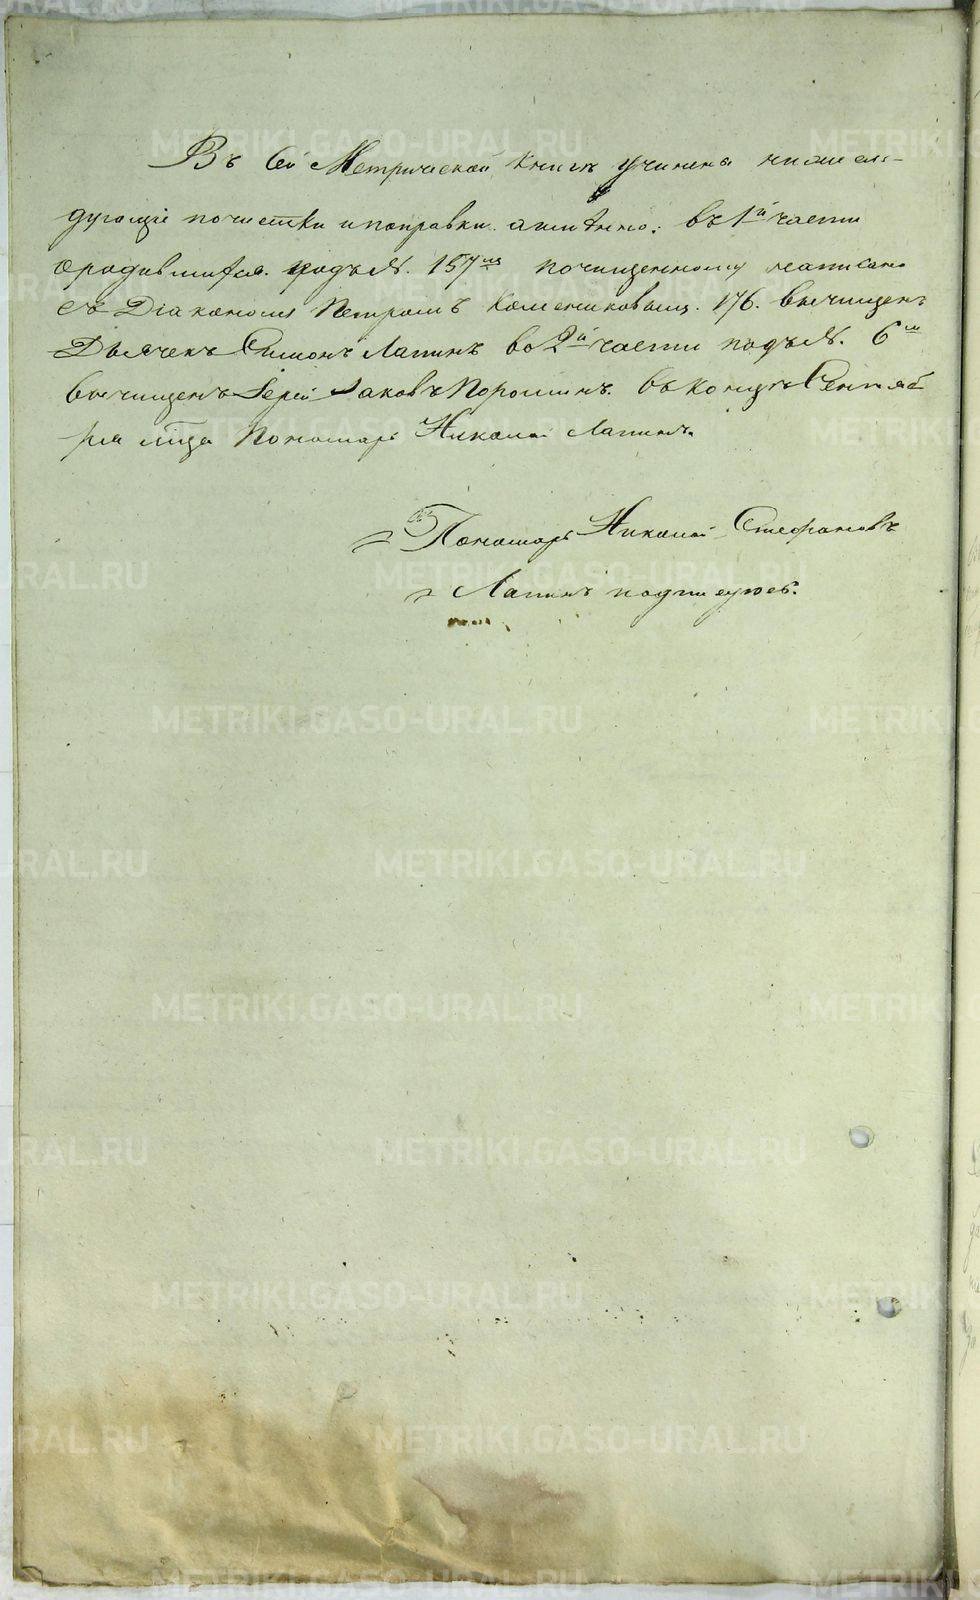 Въ сей Метрической книгѣ учинены нижеслѣ-
дующіе почистки и поправки. а именно: въ 1й части
о родившихся. подъ №. 157мъ по чищенному написано
съ Діакономъ Петромъ Колесниковымъ. 176. вычищенъ
Дьячекъ Симонъ Лапинъ во 2й части подъ №. 6мъ
вычищенъ Іерей Іаковъ Порошинъ. въ концѣ Сентяб-
ря мѣца Пономарь Николай Лапинъ.
Пономарь Николай Стефановъ
Лапинъ подписуюсь.
METRIKI.GASO-URAL.RU